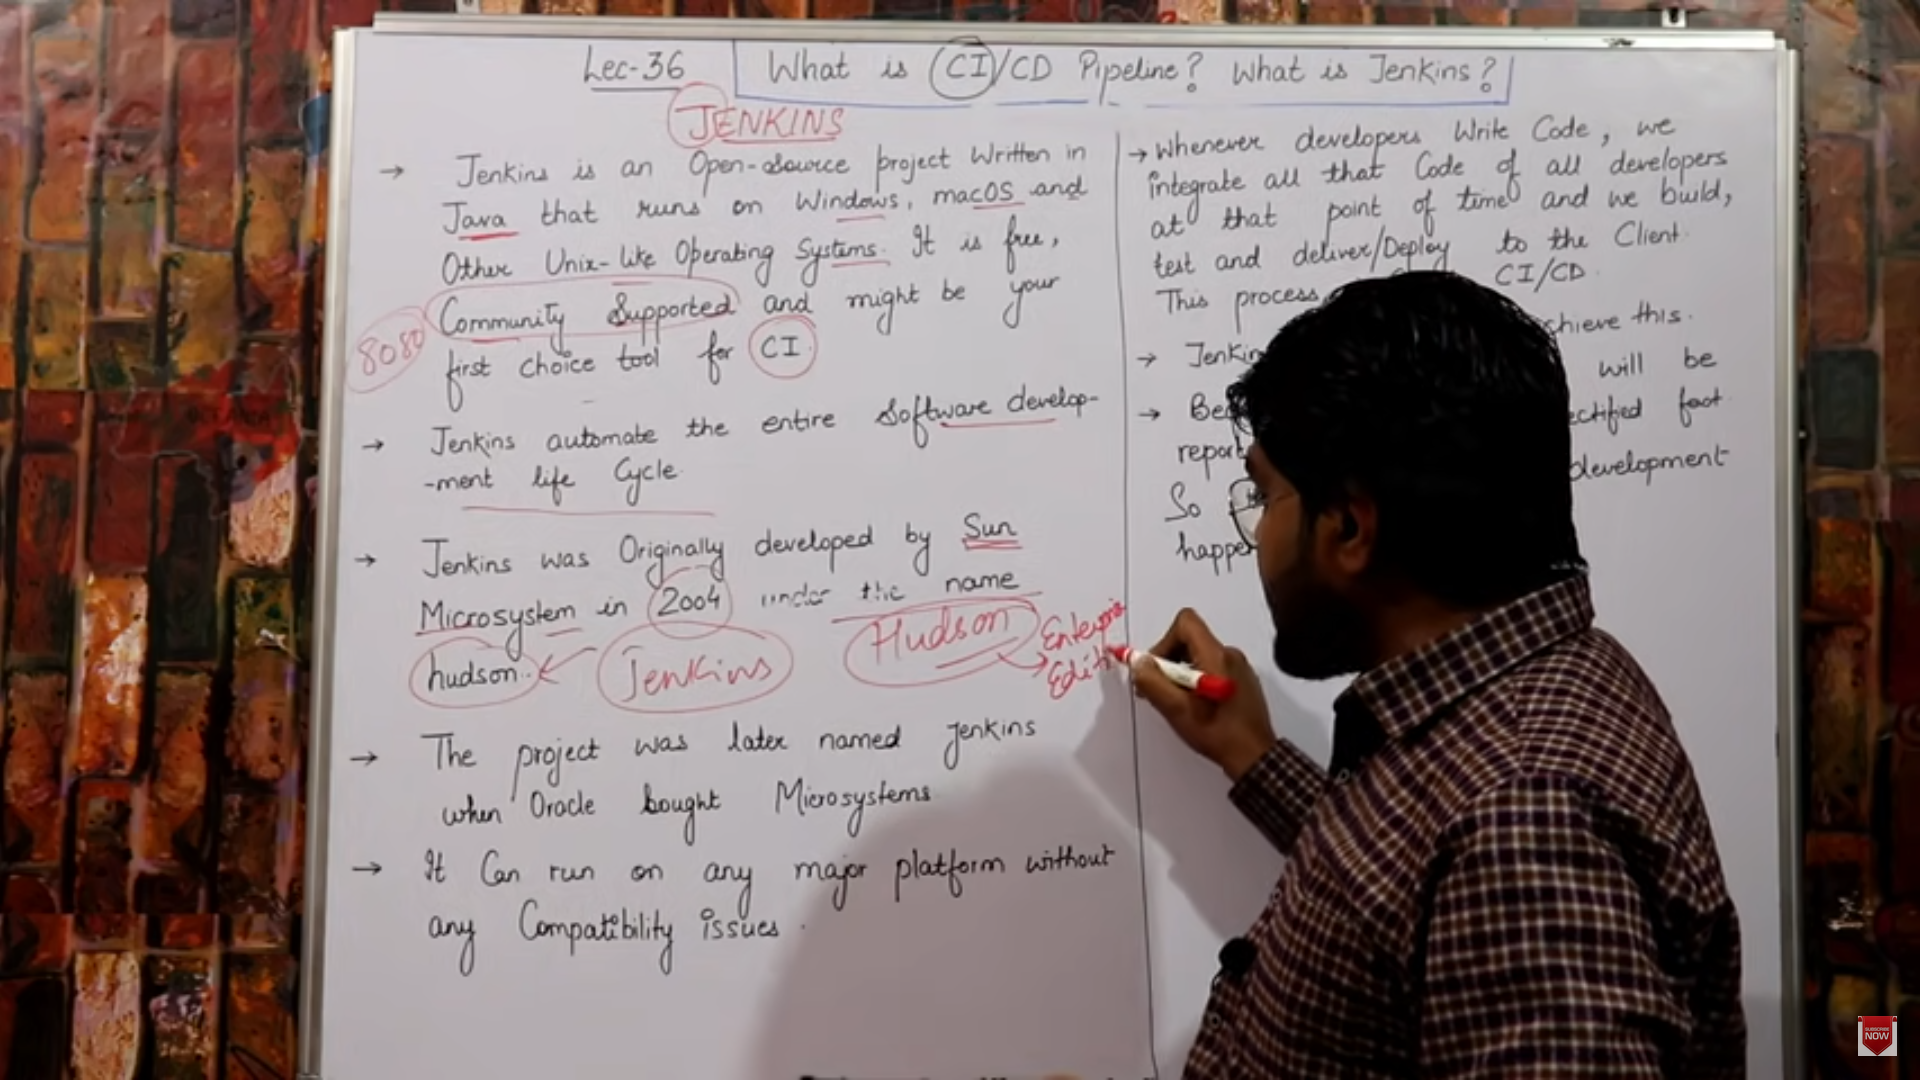 Lec-36 What is CI/CD Pipeline? What is Jenkins?
JENKINS
→ Jenkins is an Open-source project Written in
Java that runs on Windows, macOS and
Other Unix-like Operating Systems. It is free,
Community Supported and might be your
first choice tool for CI.
8080
→ Jenkins automate the entire Software develop-
-ment life Cycle.
→ Jenkins was Originally developed by Sun
Microsystem in 2004 under the name
hudson. ← Jenkins Hudson →
Edit
→ The project was later named Jenkins
when Oracle bought Microsystems
→ It Can run on any major platform without
any Compatibility issues.
→ Whenever developers Write Code, we
integrate all that Code of all developers
at that point of time and we build,
test and deliver/Deploy to the Client.
This process CI/CD.
→ this.
→ will be
fast
So development
SUBSCRIBE
NOW